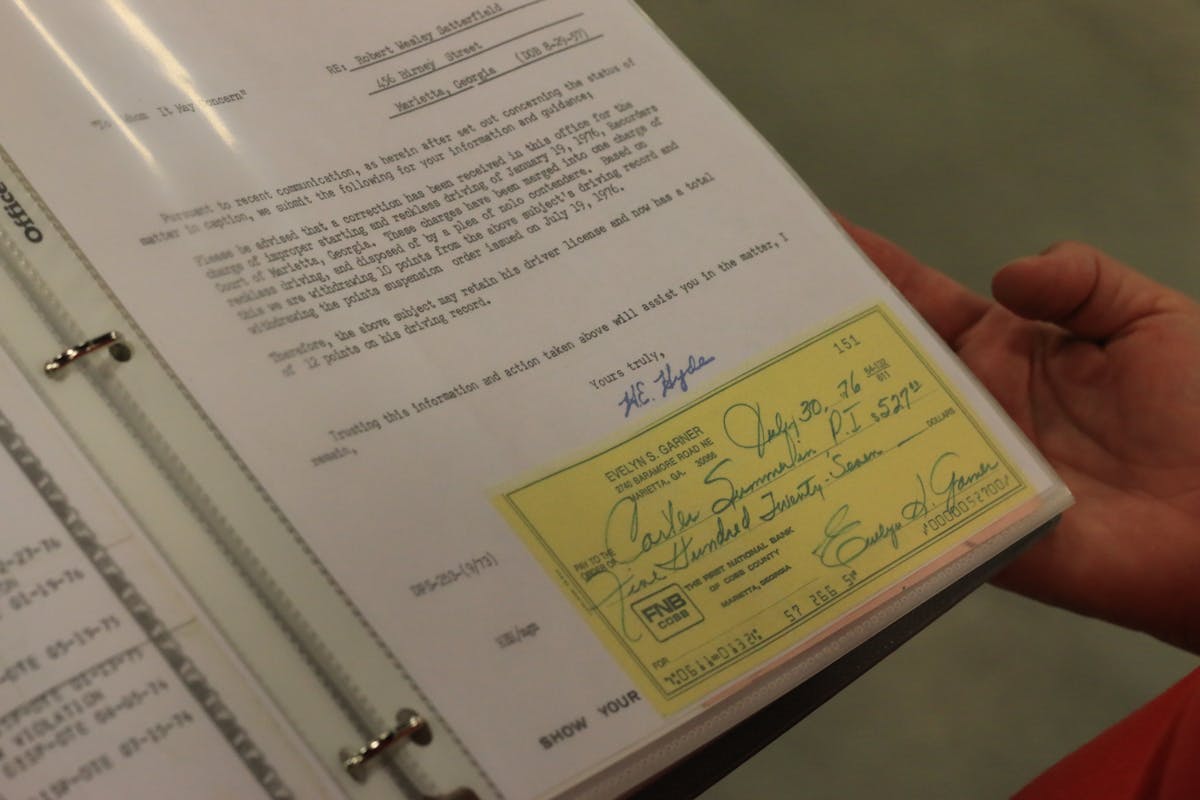 RE: Robert Wesley Satterfield
456 Birney Street
Marietta, Georgia (DOB 8-29-57)
"To Whom It May Concern"
Pursuant to recent communication, as herein after set out concerning the status of
matter in caption, we submit the following for your information and guidance;
Please be advised that a correction has been received in this office for the
charge of improper starting and reckless driving of January 19, 1976, Recorders
Court of Marietta, Georgia. These charges have been merged into one charge of
reckless driving, and disposed of by a plea of nolo contendere. Based on
this we are withdrawing 10 points from the above subject's driving record and
withdrawing the points suspension order issued on July 19, 1976.
Therefore, the above subject may retain his driver license and now has a total
of 12 points on his driving record.
Trusting this information and action taken above will assist you in the matter, I
remain,
Yours truly,
H.E. Hyde
151
EVELYN S. GARNER
2740 BARAMORE ROAD NE
MARIETTA, GA. 30066
July 30, 76
64-132
611
PAY TO THE
ORDER OF
Carter Summerlin P.I $527
Five Hundred Twenty-Seven DOLLARS
FNB
COBB
THE FIRST NATIONAL BANK
OF COBB COUNTY
MARIETTA, GEORGIA
Evelyn S. Garner
FOR
0611 0132 57 266 5 0000052700
DPS-253-(9/73)
SHOW YOUR
Office
01-19-76
05-13-75
VIOLATION
DISP-OTE 04-05-74
DISP-OTE 07-15-74